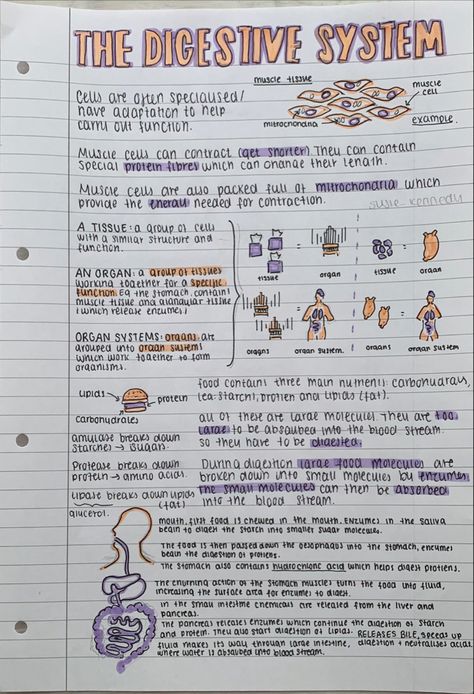 THE DIGESTIVE SYSTEM
Cells are often specialised/
have adaptation to help
carry out function.
muscle tissue
muscle
cell
mitochondria
example.
Muscle cells can contract (get shorter). They can contain
special protein fibres which can change their length.
Muscle cells are also packed full of mitochondria which
provide the energy needed for contraction.
susie kennedy
A TISSUE: a group of cells
with a similar structure and
function.
AN ORGAN: a group of tissues
working together for a specific
function. Eg the stomach, contains
muscle tissue and glandular tissue
(which release enzymes)
ORGAN SYSTEMS: organs are
grouped into organ systems
which work together to form
organisms.
tissue
organ
tissue
organ
organs
organ system.
organs
organ system
lipids
protein
carbohydrates
food contains three main nutrients: carbohydrates,
(eg starch), protien and lipids (fat).
all of these are large molecules They are too
large to be absorbed into the blood stream.
so they have to be digested.
amylase breaks down
starches → sugars.
Protease breaks down
protein → amino acids.
lipase breaks down lipids
(fat)
glycerol.
During digestion large food molecules are
broken down into small molecules by enzymes
The small molecules can then be absorbed
into the blood stream.
mouth, first food is chewed in the mouth. Enzymes in the saliva
begin to digest the starch into smaller sugar molecules.
The food is then passed down the oesophagus into the stomach, enzymes
begin the digestion of protiens.
The stomach also contains hydrochloric acid which helps digest protiens.
The churning action of the stomach muscles turns the food into fluid,
increasing the surface area for enzymes to digest.
in the small intestine chemicals are released from the liver and
pancreas.
The pancreas releases enzymes which continue the digestion of starch
and protein. They also start digestion of lipids. RELEASES BILE, speeds up
digestion + neutralises acids.
fluid makes its way through large intestine,
where water is absorbed into blood stream.